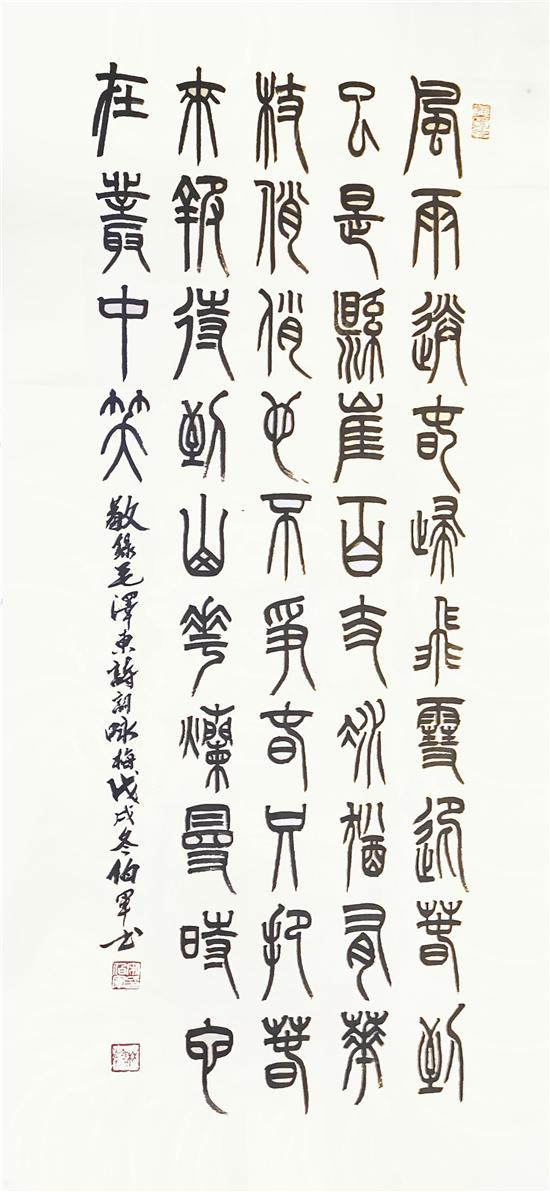 風雨送春歸飛雪迎春到
已是縣崖百丈冰猶有華
枝俏俏也不爭春只把春
來報待到山花爛曼時它
在叢中笑
敬錄毛澤東詩詞咏梅戊戌冬伯軍书